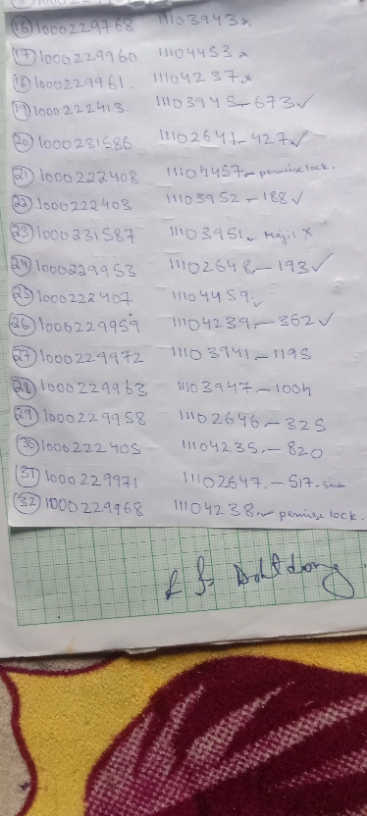 (16) 1000229768 11103943 x
(17) 1000229960 11104453 x
(18) 1000229961. 11104237 x
(19) 1000222413 11103945-673 ✓
(20) 1000231586 11102641-427 ✓
(21) 1000222408 11104457- lock.
(22) 1000222403 11103952-188 ✓
(23) 1000231587 11103951- Majil X
(24) 1000229953 11102648-193 ✓
(25) 1000222407 11104459 ✓
(26) 1000229959 11104239-362 ✓
(27) 1000229972 11103941-1195
(28) 1000229963 11103947-1004
(29) 1000229958 11102646-325
(30) 1000222405 11104235.-820
(31) 1000229971 11102647.-517.
(32) 1000229968 11104238- lock.